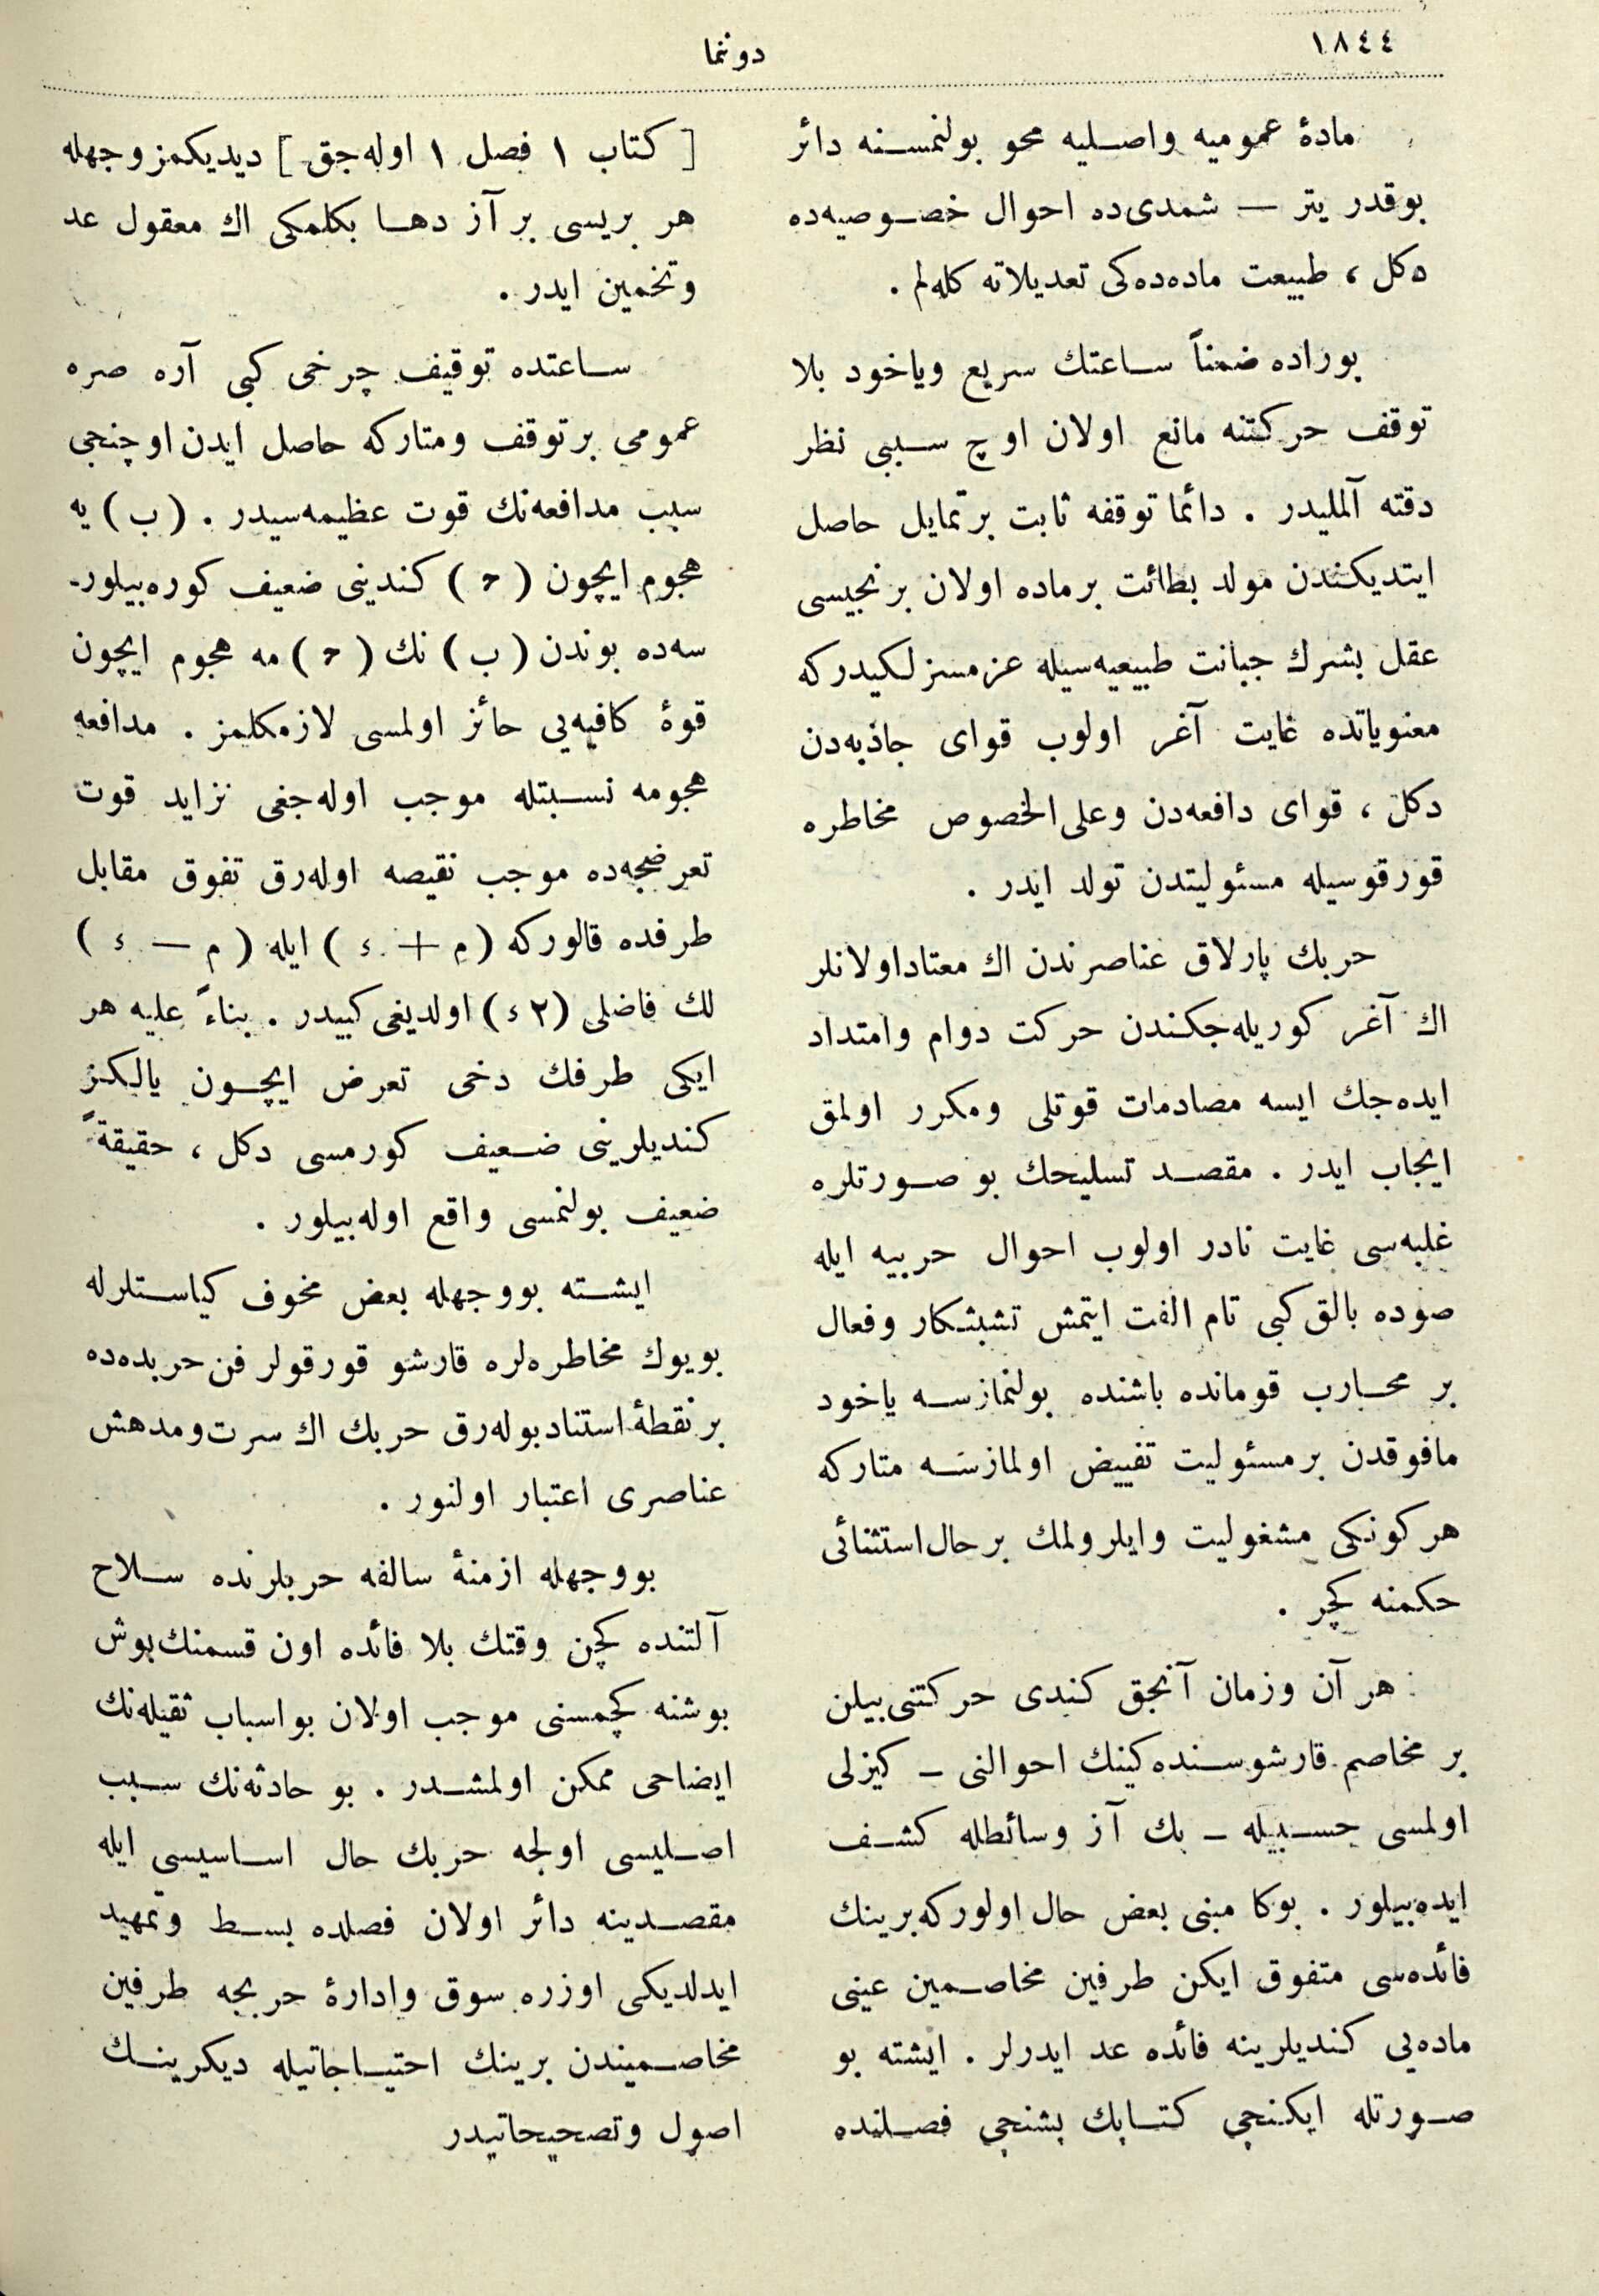 ١٨٤٤
دوننما
مادهٔ عموميه واصليه محو بولنمسنه دائر
بوقدر يتر — شمدی‌ده احوال خصوصيه‌ده
دكل ، طبيعت ماده‌ده‌كی تعديلاته كله‌لم .
بوراده ضمناً ساعتك سريع وياخود بلا
توقف حركتنه مانع اولان اوچ سببی نظر
دقته آلمليدر . دائما توقفه ثابت بر تمايل حاصل
ايتديكندن مولد بطائت برماده اولان برنجيسی
عقل بشرك جبانت طبيعيه‌سيله عزمسزلكيدركه
معنوياتده غايت آغر اولوب قوای جاذبه‌دن
دكل ، قوای دافعه‌دن وعلی‌الخصوص مخاطره
قورقوسيله مسئوليتدن تولد ايدر .
حربك پارلاق عناصرندن اك معتاداولانلر
اك آغر كوريله‌جكندن حركت دوام وامتداد
ايده‌جك ايسه مصادمات قوتلی ومكرر اولمق
ايجاب ايدر . مقصد تسليحك بو صورتلره
غلبه‌سی غايت نادر اولوب احوال حربيه ايله
صوده بالق كبی تام الفت ايتمش تشبثكار وفعال
بر محارب قومانده باشنده بولنمازسه ياخود
مافوقدن برمسئوليت تفييض اولمازسه متاركه
هركونكی مشغوليت وايلرولمك برحال‌استثنائی
حكمنه كچر .
هر آن وزمان آنجق كندی حركتنی‌بيلن
بر مخاصم قارشوسنده‌كينك احوالنی – كيزلی
اولمسی حسبيله – بك آز وسائطله كشف
ايده‌بيلور . بوكا مبنی بعض حال اولوركه‌برينك
فائده‌سی متفوق ايكن طرفين مخاصمين عينی
ماده‌يی كنديلرينه فائده عد ايدرلر . ايشته بو
صورتله ايكنجی كتابك بشنجی فصلنده
[ كتاب ١ فصل ١ اوله‌جق ] ديديكمزوجهله
هر بريسی بر آز دها بكلمكی اك معقول عد
وتخمين ايدر .
ساعتده توقيف چرخی كبی آره صره
عمومی برتوقف ومتاركه حاصل ايدن‌اوچنجی
سبب مدافعه‌نك قوت عظيمه‌سيدر . (ب) يه
هجوم ايچون (ح) كندينی ضعيف كوره‌بيلور-
سه‌ده بوندن (ب) نك (ح) مه هجوم ايچون
قوهٔ كافيه‌يی حائز اولمسی لازمكلمز . مدافعه
هجومه نسبتله موجب اوله‌جغی تزايد قوت
تعرضجه‌ده موجب نقيصه اوله‌رق تفوق مقابل
طرفده قالوركه (م + ء) ايله (م — ء)
لك فاضلی (٢ء) اولديغی‌كبيدر . بناءً عليه هر
ايكی طرفك دخی تعرض ايچون يالكز
كنديلرينی ضعيف كورمسی دكل ، حقيقةً
ضعيف بولنمسی واقع اوله‌بيلور .
ايشته بووجهله بعض مخوف كياستلرله
بويوك مخاطره‌لره قارشو قورقولر فن‌حربده‌ده
برنقطهٔ‌استنادبوله‌رق حربك اك سرت‌ومدهش
عناصری اعتبار اولنور .
بووجهله ازمنهٔ سالفه حربلرنده سلاح
آلتنده كچن وقتك بلا فائده اون قسمنك‌بوش
بوشنه كچمسنی موجب اولان بواسباب ثقيله‌نك
ايضاحی ممكن اولمشدر . بو حادثه‌نك سبب
اصليسی اولجه حربك حال اساسيسی ايله
مقصدينه دائر اولان فصلده بسط وتمهيد
ايدلديكی اوزره سوق وادارهٔ حربجه طرفين
مخاصميندن برينك احتياجاتيله ديكرينك
اصول وتصحيحاتيدر